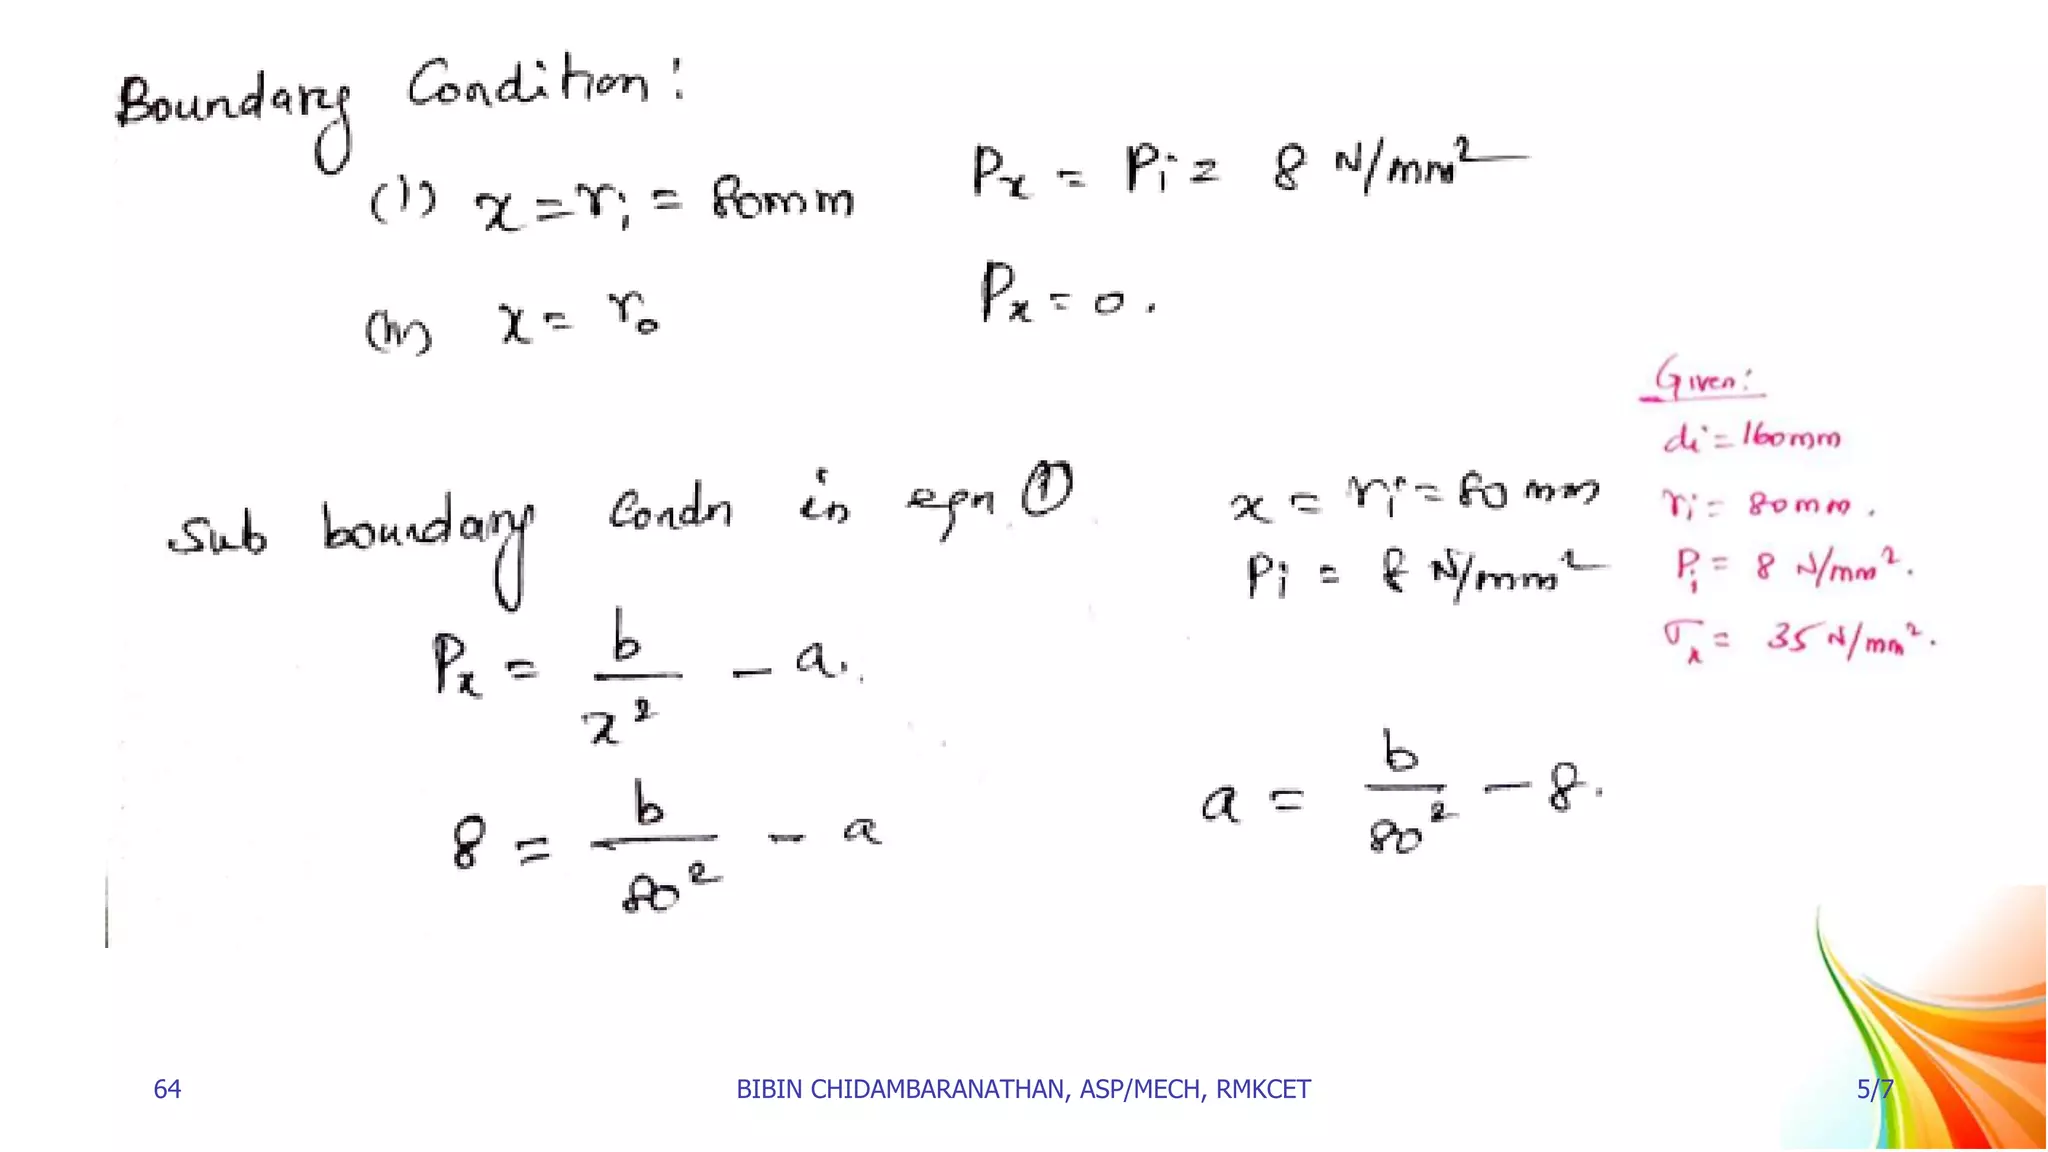 Boundary Condition:
(i) x = ri = 80mm Px = Pi = 8 N/mm²
(ii) x = ro Px = 0.
Given:
di = 160mm
ri = 80mm.
Pi = 8 N/mm².
σx = 35 N/mm².
Sub boundary condn in eqn ① x = ri = 80 mm
Pi = 8 N/mm²
Px = b/x² - a.
8 = b/80² - a a = b/80² - 8.
64 BIBIN CHIDAMBARANATHAN, ASP/MECH, RMKCET 5/7